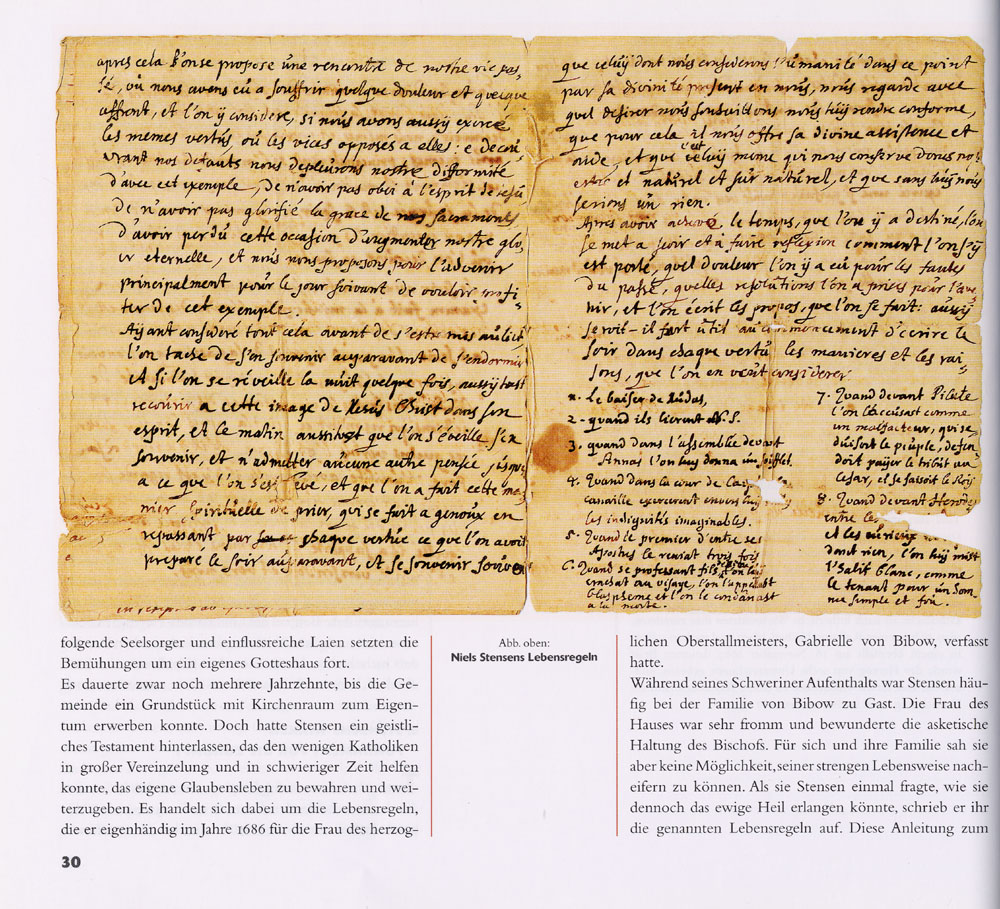 apres cela l'on se propose une rencontre de nostre vie pas-
sé, où nous avons eû a souffrir quelque douleur et quelque
affront, et l'on y considere, si nous avons aussy exercé
les memes vertus, où les vices opposés a elles: e
vrant nos defauts nous depleurons nostre difformité
d'avec cet exemple, de n'avoir pas obei à l'esprit de
de n'avoir pas glorifié la grace de nos sacraments
d'avoir perdû cette occasion d'augmenter nostre glo,
eternelle, et nous nous proposons pour l'advenir
principalment pour le jour suivant de vouloir imi-
ter de cet exemple.
Ayant consideré tout cela avant de s'estre mis au lict
l'on tache de s'en souvenir auparavant de s'endormir
et si l'on se réveille la nuit quelque fois, aussy tost
recourir a cette image de Jesus Christ dans son
esprit, et le matin aussitost que l'on s'éveille s'en
souvenir, et n'admetter aucune autre pensée jusque
a ce que l'on s'est levé, et que l'on a fait cette ma-
nier spirituelle de prier, qui se fait a genoux en
repassant par chaque vertue ce que l'on avoit
preparé le soir auparavant, et se souvenir
que celuy dont nous considerons l'umanité dans ce point
par sa divinité present en nous, nous regarde avec
quel desirer nous luy rendre conforme,
que pour cela il nous offre sa divine assistence et
aide, et que c'est celuy meme qui nous conserve dans no
estre et naturel et sur naturel, et que sans luy nous
serions un rien.
Apres avoir achevé le temps, que l'on y a destiné, l'on
se met a et à faire reflexion comment l'on s'y
est porté, quel douleur l'on y a eû pour les fautes
du passé, quelles resolutions l'on a prises pour l'ave
nir, et l'on écrit les propos, que l'on se fait: aussy
seroit-il fort util au commencement d'ecrire le
soir dans chaque vertu les manieres et les rai
sons, que l'on en veut considerer
1. Le baiser de Judas,
2. quand ils N. S.
3. quand dans l'assemblée devant
Annas l'on luy donna un soufflet.
4. Quand dans la cour de
canaille exercerent envers luy
les indignités imaginables.
5. Quand le premier d'entre ses
Apostres le reniat trois fois
6. Quand se professant fils
crachat au visage, l'on l'appellast
blaspheme et l'on le condamnast
a la morte.
7. Quand devant Pilate
l'on l'accusast comme
un malfacteur, qui se
duisoit le peuple, defen
doit païjer le tribut au
Cesar, et se faisoit le Roy
8. Quand devant Herodes
entre les
et les
dont rien, l'on luy mist
l'habit blanc, comme
le tenant pour un hom
me simple et fou.
folgende Seelsorger und einflussreiche Laien setzten die
Bemühungen um ein eigenes Gotteshaus fort.
Es dauerte zwar noch mehrere Jahrzehnte, bis die Ge-
meinde ein Grundstück mit Kirchenraum zum Eigen-
tum erwerben konnte. Doch hatte Stensen ein geistli-
ches Testament hinterlassen, das den wenigen Katholiken
in großer Vereinzelung und in schwieriger Zeit helfen
konnte, das eigene Glaubensleben zu bewahren und wei-
terzugeben. Es handelt sich dabei um die Lebensregeln,
die er eigenhändig im Jahre 1686 für die Frau des herzog-
Abb. oben:
Niels Stensens Lebensregeln
lichen Oberstallmeisters, Gabrielle von Bibow, verfasst
hatte.
Während seines Schweriner Aufenthalts war Stensen häu-
fig bei der Familie von Bibow zu Gast. Die Frau des
Hauses war sehr fromm und bewunderte die asketische
Haltung des Bischofs. Für sich und ihre Familie sah sie
aber keine Möglichkeit, seiner strengen Lebensweise nach-
eifern zu können. Als sie Stensen einmal fragte, wie sie
dennoch das ewige Heil erlangen könnte, schrieb er ihr
die genannten Lebensregeln auf. Diese Anleitung zum
30